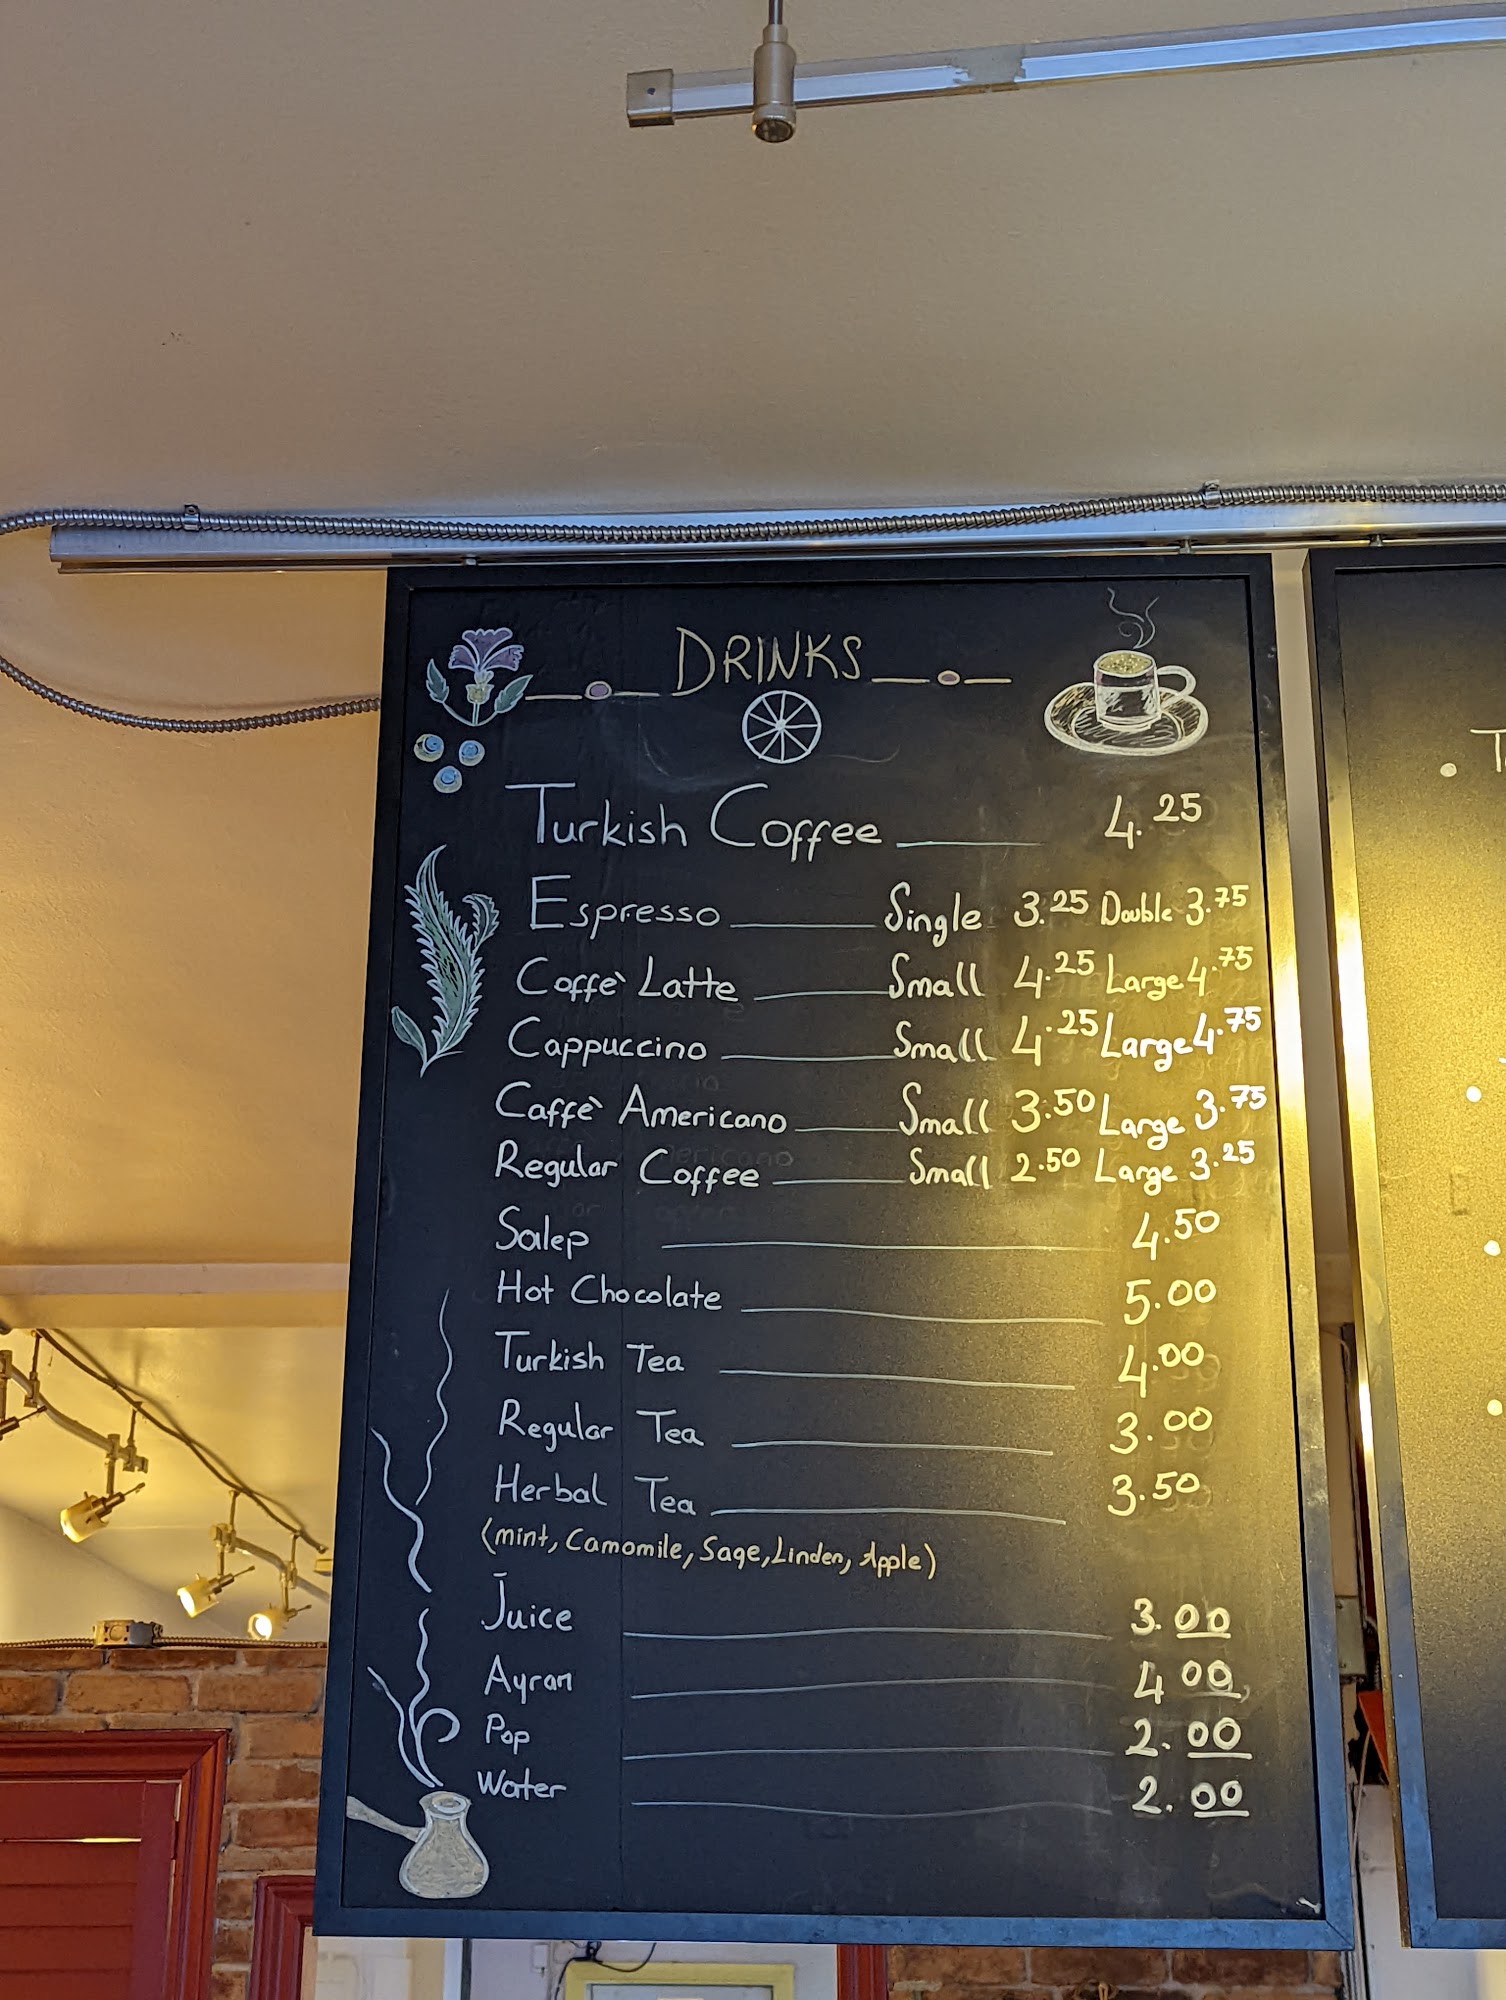 DRINKS
Turkish Coffee 4.25
Espresso Single 3.25 Double 3.75
Coffè Latte Small 4.25 Large 4.75
Cappuccino Small 4.25 Large 4.75
Caffè Americano Small 3.50 Large 3.75
Regular Coffee Small 2.50 Large 3.25
Salep 4.50
Hot Chocolate 5.00
Turkish Tea 4.00
Regular Tea 3.00
Herbal Tea 3.50
(mint, Camomile, Sage, Linden, Apple)
Juice 3.00
Ayran 4 00
Pop 2.00
Water 2.00